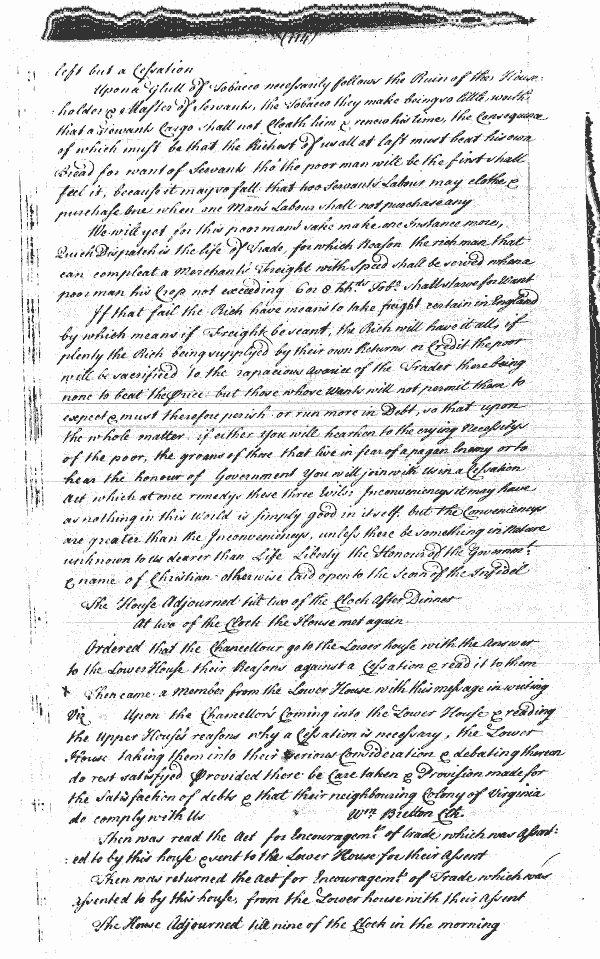 (114)
left but a Cessation
Upon a Glutt of Tobacco necessarily follows the Ruin of ther House-
holder & Master of Servants, the Tobacco they make being so little worth
that a Servants Cargo shall not Cloath him & renew his time, the Consequence
of which must be that the Richest of us all at last must beat his own
Bread for want of Servants tho' the poor man will be the first shall
feel it, because it may so fall that two Servants Labour may clothe &
purchase One when one Mans Labour shall not purchase any
We will yet for this poor mans sake make one Instance more,
Quick Dispatch is the life of Trade, for which Reason the rich man that
can compleat a Merchants Freight with Speed shall be served when a
poor man his Crop not exceeding 6 or 8 hhds Tobo shall starve for Want
If that fail the Rich have means to take freight certain in England
by which means if Freight be scant, the Rich will have it all, if
plenty the Rich being supplyed by their own Returns or Credit the poor
will be sacrificed to the rapacious Avarice of the Trader there being
none to beat the Price but those whose Wants will not permit them to
expect & must therefore perish or run more in Debt, so that upon
the whole matter if either You will hearken to the crying Necessitys
of the poor, the groans of those that live in fear of a pagan Enemy or to
hear the honour of Government You will join with us in a Cessation
Act which at once remedys these three Evils: Inconvenienceys it may have
as nothing in this World is simply good in itself, but the Convenienceys
are greater than the Inconvenienceys, unless there be something in Nature
unknown to Us dearer than Life Liberty the Honour of the Governmt
& name of Christian otherwise laid open to the Scorn of the Infidel
The House Adjourned till two of the Clock After Dinner
At two of the Clock the House met again
Ordered that the Chancellour go to the Lower house with the Answer
to the Lower House their Reasons against a Cessation & read it to them
x Then came a Member from the Lower House with this message in writing
Viz Upon the Chancellor's Coming into the Lower House & reading
the Upper House's reasons why a Cessation is necessary, the Lower
House taking them into their Serious Consideration & debating thereon
do rest satisfyed Provided there be Care taken & Provision made for
the Satisfaction of debts & that their neighbouring Colony of Virginia
do comply with Us Wm Bretton Clk.
Then was read the Act for Encouragemt of trade which was Assent-
:ed to by this house & sent to the Lower House for their Assent
Then was returned the Act for Encouragemt of Trade which was
assented to by this house, from the Lower house with their Assent
The House Adjourned till nine of the Clock in the morning